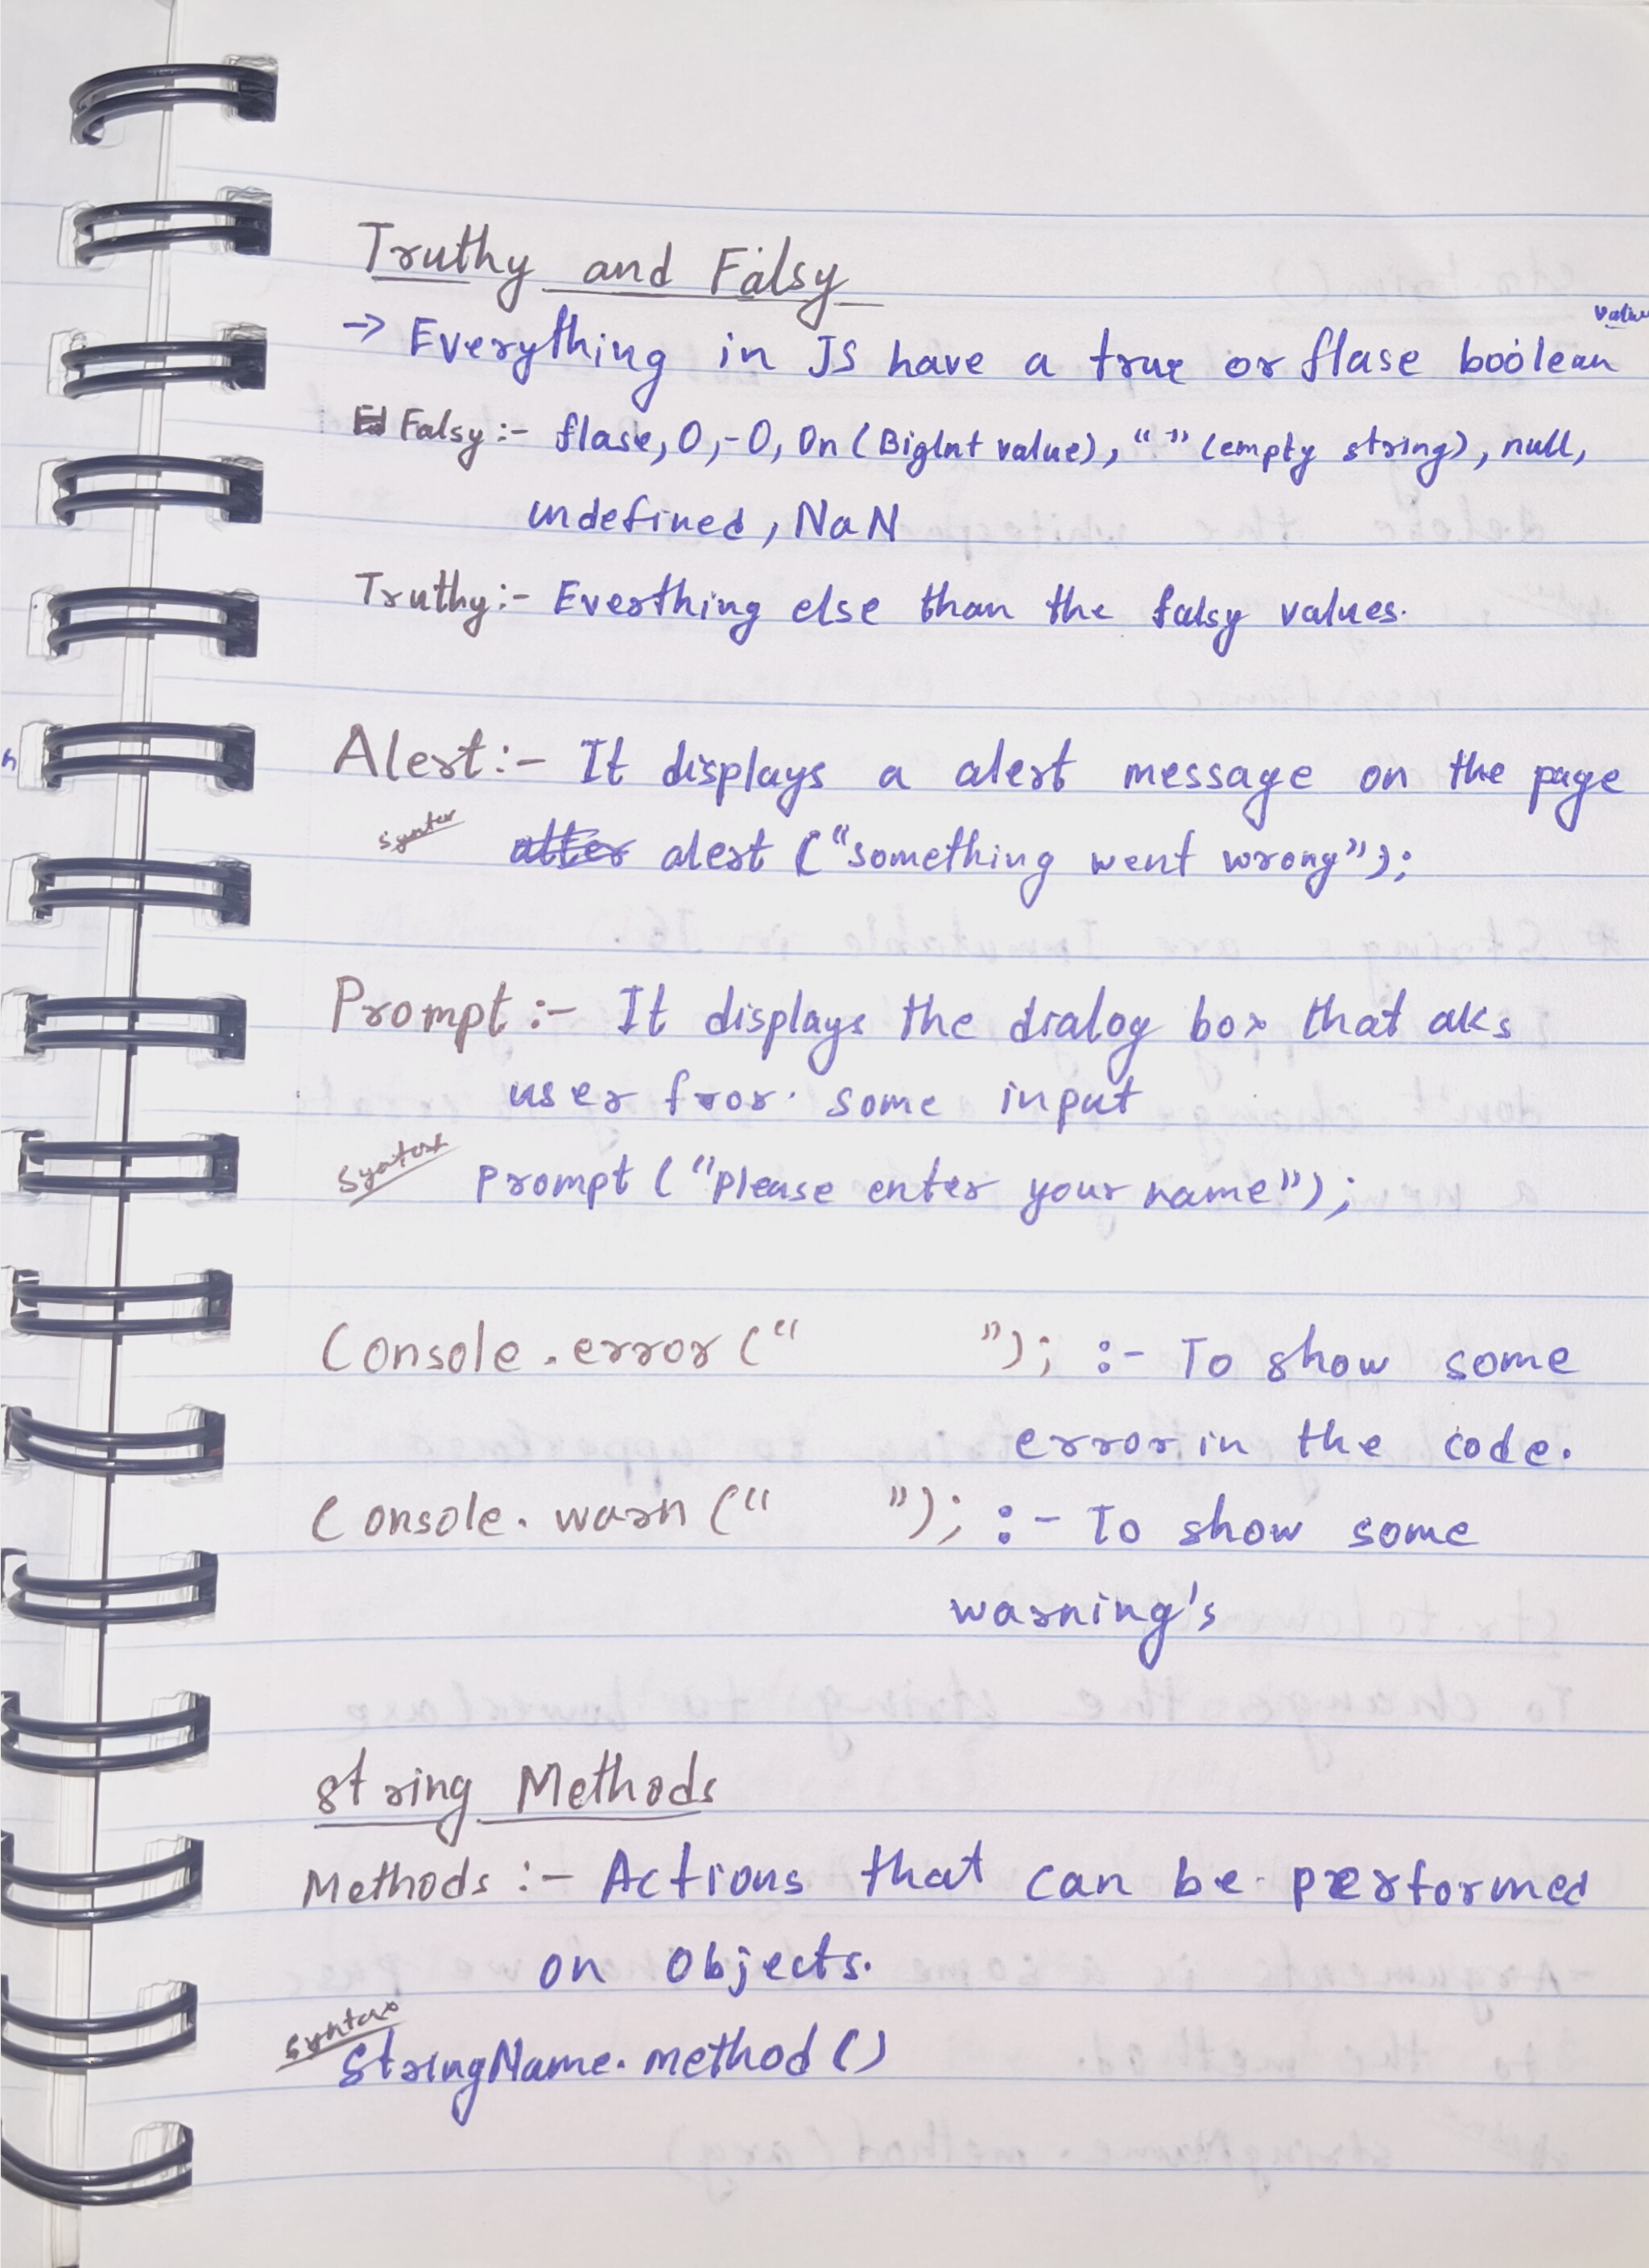 Truthy and Falsy
→ Everything in JS have a true or flase boolean value
Falsy :- flase, 0, -0, 0n (BigInt value), “ ” (empty string), null,
undefined, NaN
Truthy :- Everthing else than the falsy values.
Alert :- It displays a alert message on the page
syntax alert (“something went wrong”);
Prompt :- It displays the dialog box that aks
user for some input
Syntax prompt (“please enter your name”);
Console.error (“ ”); :- To show some
error in the code.
Console.warn (“ ”); :- To show some
warning's
String Methods
Methods :- Actions that can be performed
on Objects.
Syntax
StringName.method ()